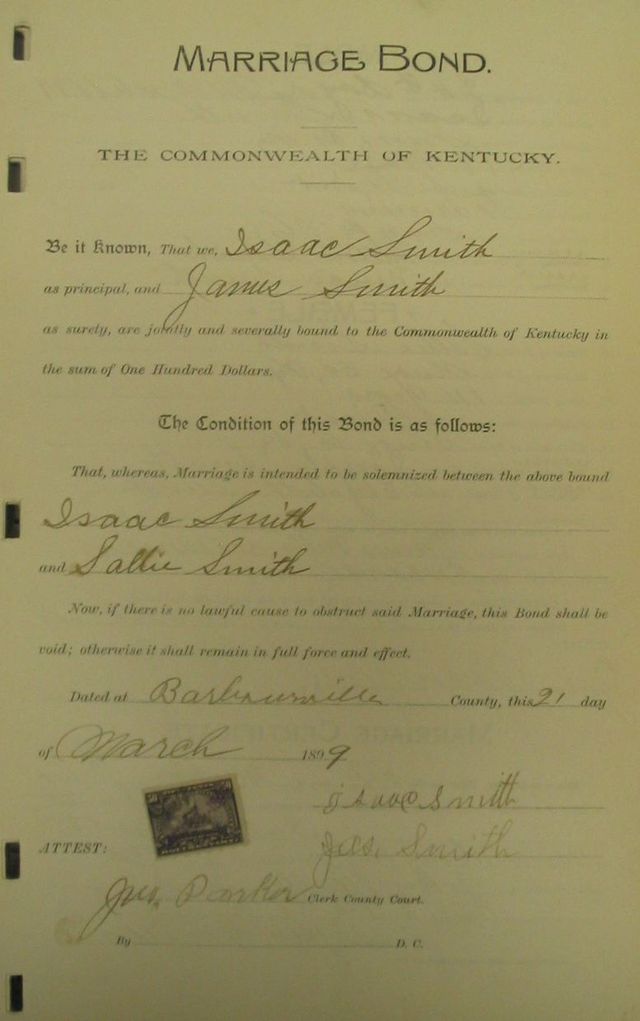 MARRIAGE BOND.
THE COMMONWEALTH OF KENTUCKY.
Be it Known, That we, Isaac Smith
as principal, and James Smith
as surety, are jointly and severally bound to the Commonwealth of Kentucky in
the sum of One Hundred Dollars.
The Condition of this Bond is as follows:
That, whereas, Marriage is intended to be solemnized between the above bound
Isaac Smith
and Sallie Smith
Now, if there is no lawful cause to obstruct said Marriage, this Bond shall be
void; otherwise it shall remain in full force and effect.
Dated at Barbourville County, this 21 day
of March 1899
Isaac Smith
ATTEST: Jas. Smith
Jno. Parker Clerk County Court.
By D. C.